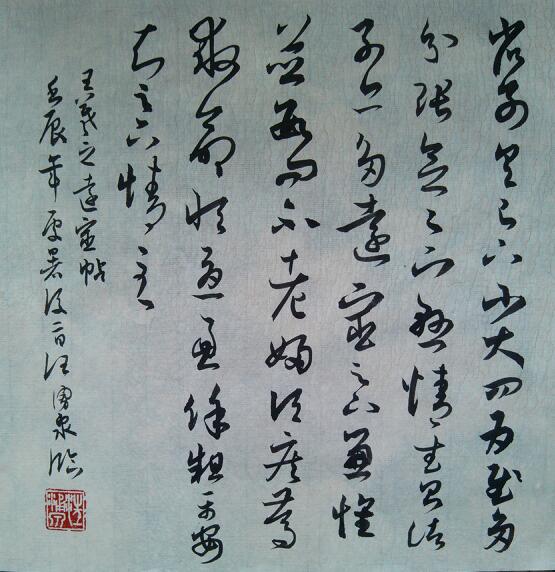 省別具足下小大問為慰多
分張念足下懸情武昌諸
子亦多遠宦足下兼懷
並數問不老婦頃疾篤
救命恒憂慮余粗平安
知足下情至
王羲之遠宦帖
壬辰年暑後二日汪臨